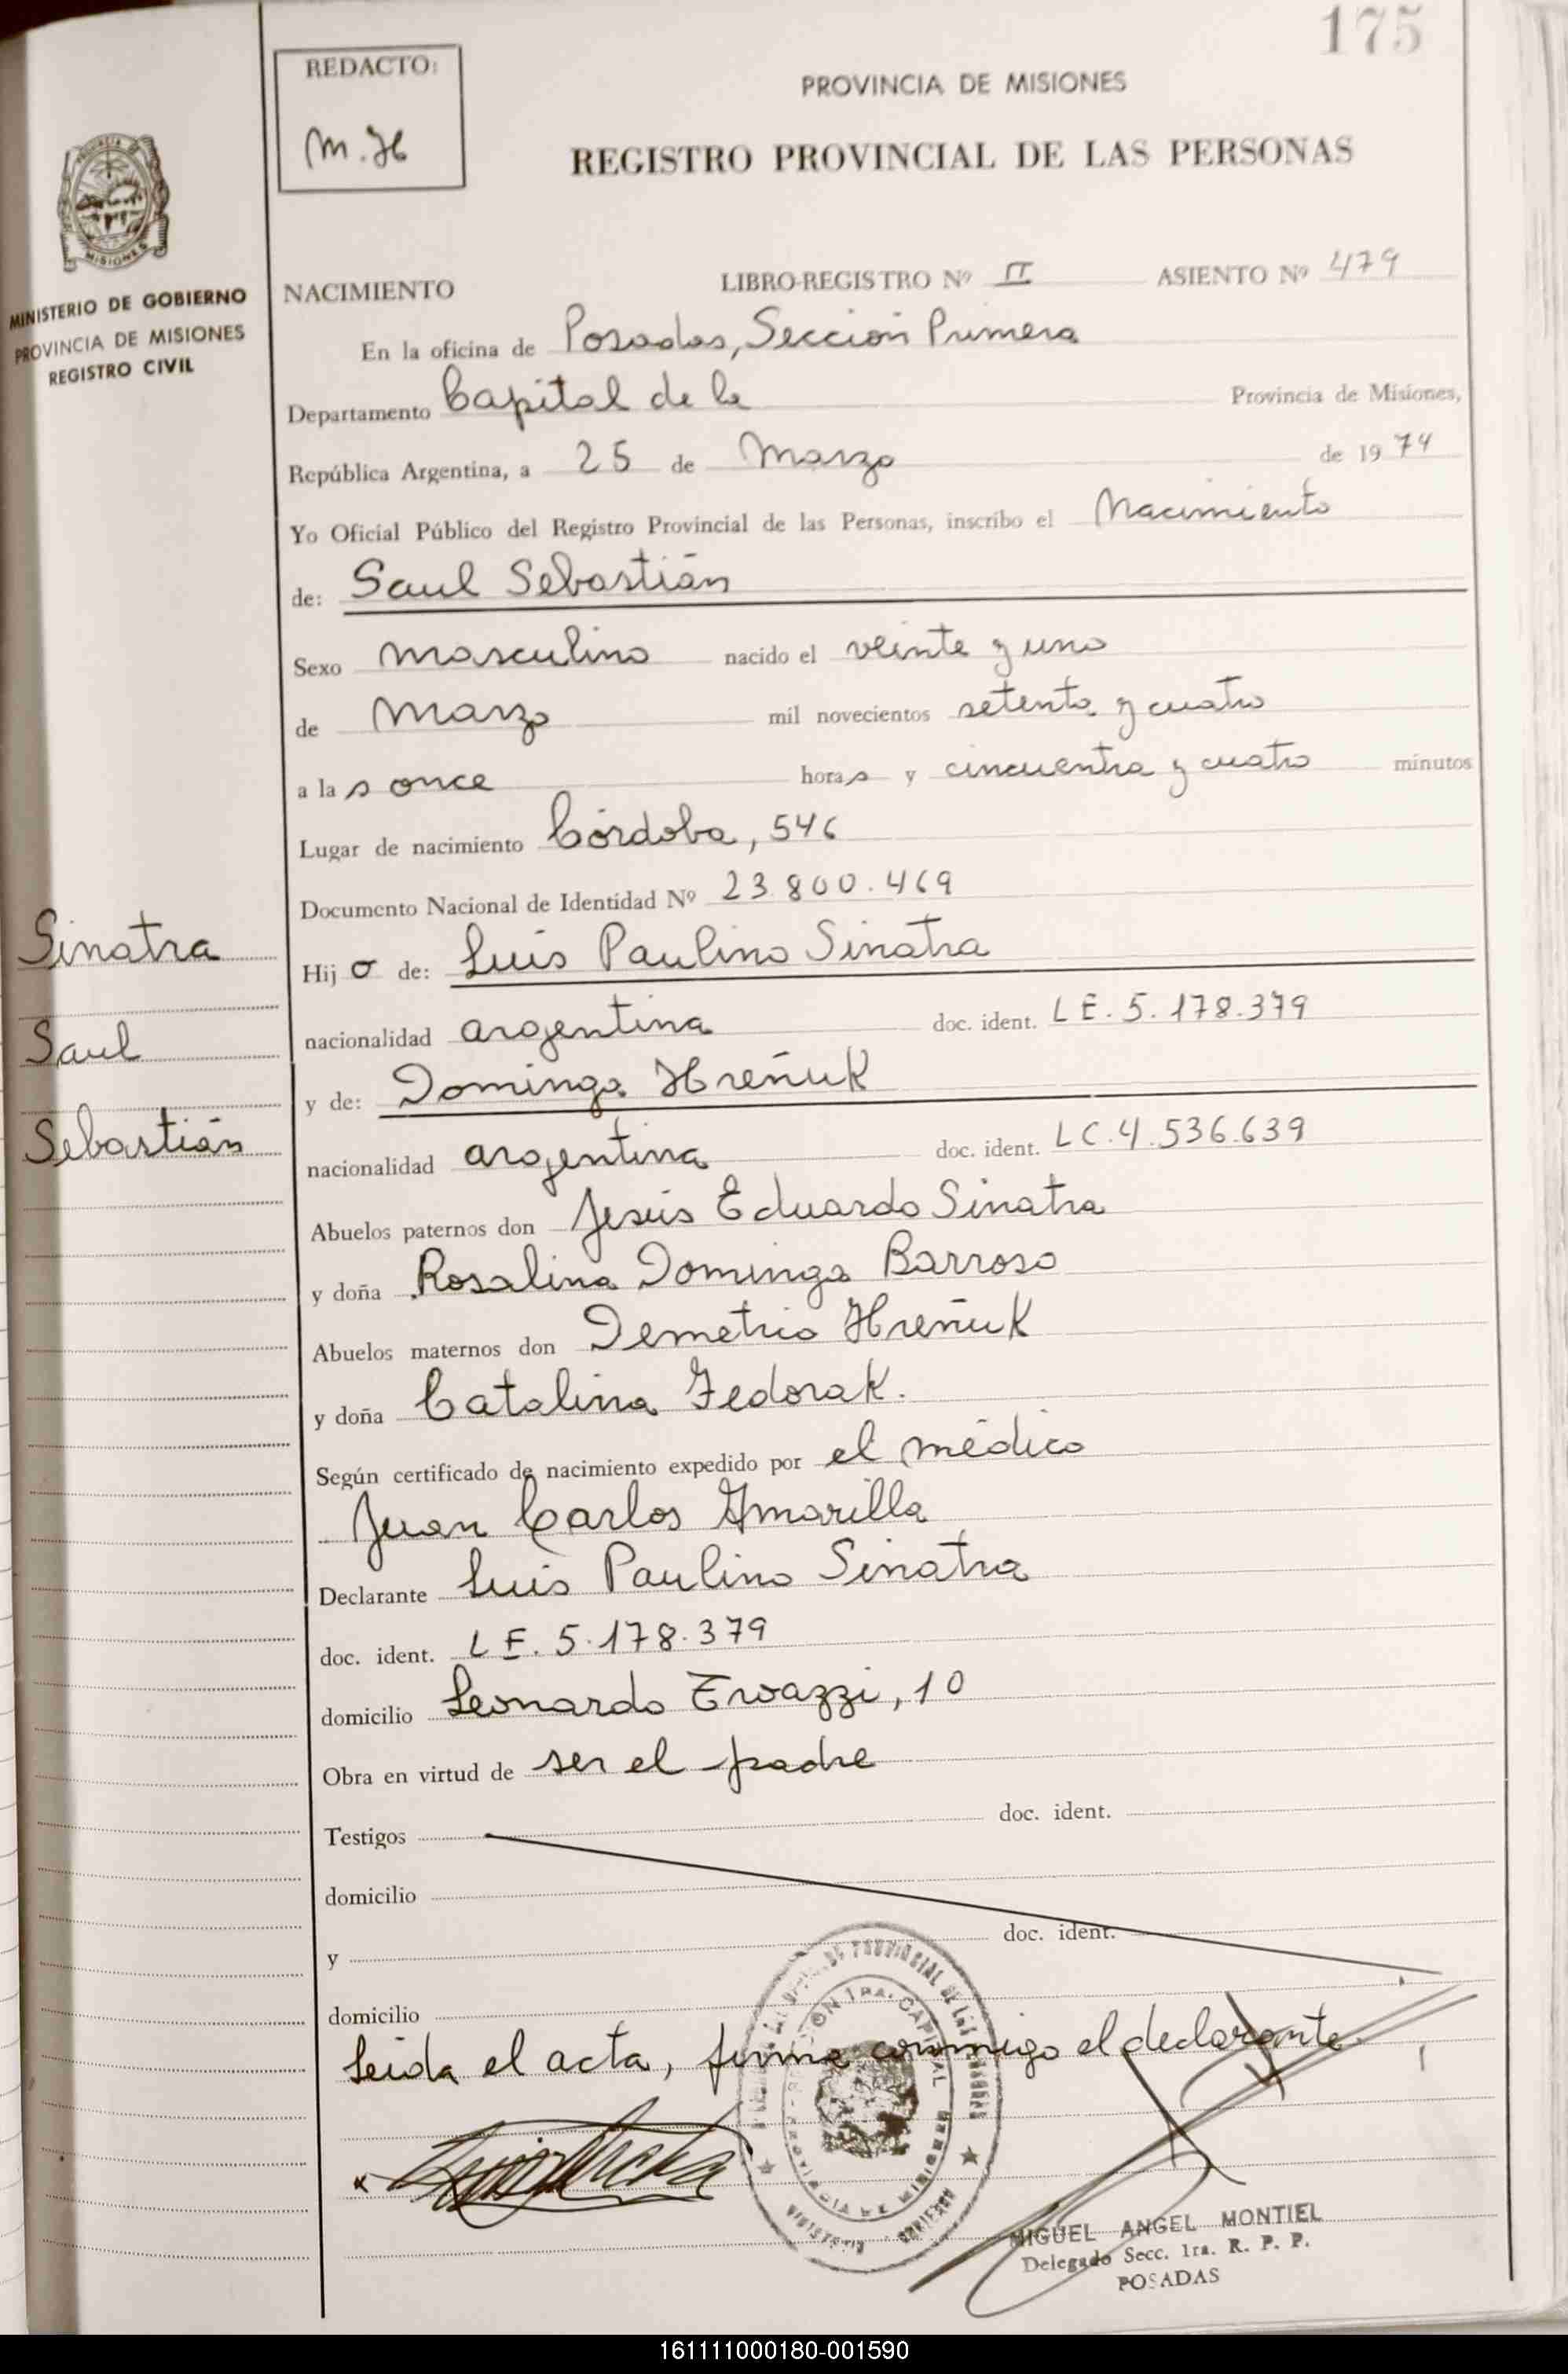 175
REDACTO:
M.H
PROVINCIA DE MISIONES
REGISTRO PROVINCIAL DE LAS PERSONAS
MISIONES
MINISTERIO DE GOBIERNO
PROVINCIA DE MISIONES
REGISTRO CIVIL
NACIMIENTO LIBRO-REGISTRO Nº II ASIENTO Nº 479
En la oficina de Posadas, Sección Primera
Departamento Capital de la Provincia de Misiones,
República Argentina, a 25 de Marzo de 1974
Yo Oficial Público del Registro Provincial de las Personas, inscribo el Nacimiento
de: Saul Sebastián
Sexo masculino nacido el veinte y uno
de Marzo mil novecientos setenta y cuatro
a las once horas y cincuentra y cuatro minutos
Lugar de nacimiento Córdoba, 546
Documento Nacional de Identidad Nº 23.800.469
Hijo de: Luis Paulino Sinatra
nacionalidad argentina doc. ident. LE. 5.178.379
y de: Dominga Hreñuk
nacionalidad argentina doc. ident. LC. 4.536.639
Abuelos paternos don Jesús Eduardo Sinatra
y doña Rosalina Dominga Barroso
Abuelos maternos don Demetrio Hreñuk
y doña Catalina Fedorak.
Según certificado de nacimiento expedido por el médico
Juan Carlos Amarilla
Declarante Luis Paulino Sinatra
doc. ident. LE. 5.178.379
domicilio Leonardo 10
Obra en virtud de ser el padre
Testigos doc. ident.
domicilio
y doc. ident.
domicilio
Leída el acta, firma conmigo el declarante.
Sinatra
Saul
Sebastián
MIGUEL ANGEL MONTIEL
Delegado Secc. 1ra. R. P. P.
POSADAS
161111000180-001590